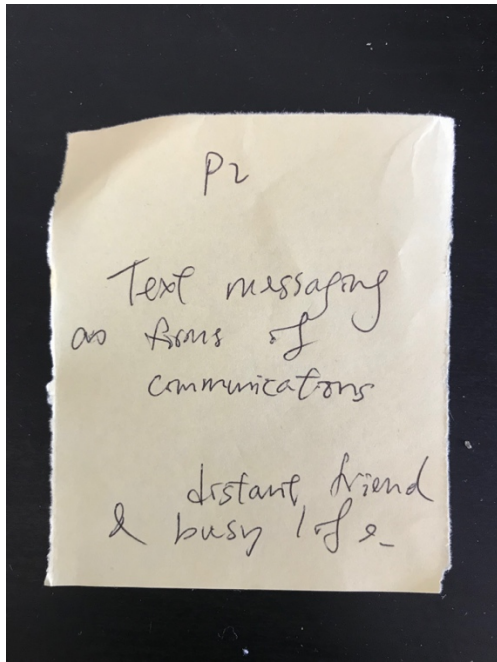 P2
Text messaging
as forms of
communications
distant friend
& busy life